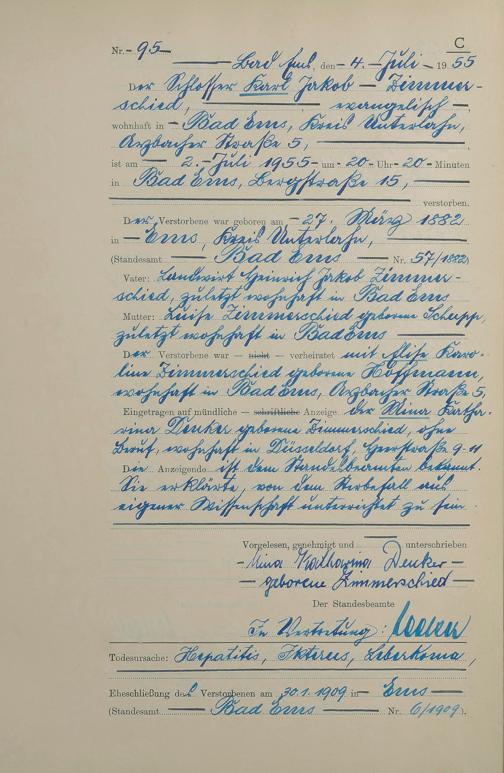 C
Nr. 95
Bad Ems, den 4. Juli 1955
Der Schlosser Karl Jakob Zimmer-
schied, evangelisch,
wohnhaft in Bad Ems, Kreis Unterlahn,
Arzbacher Straße 5,
ist am 2. Juli 1955 um 20 Uhr 20 Minuten
in Bad Ems, Bergstraße 15,
verstorben.
Der Verstorbene war geboren am 27. März 1882
in Ems, Kreis Unterlahn,
(Standesamt Bad Ems Nr. 57/1882)
Vater: Landwirt Heinrich Jakob Zimmer-
schied, zuletzt wohnhaft in Bad Ems
Mutter: Luise Zimmerschied geborene
zuletzt wohnhaft in Bad Ems
Der Verstorbene war – nicht – verheiratet mit Elise Karo-
line Zimmerschied geborene Hoffmann,
wohnhaft in Bad Ems, Arzbacher Straße 5,
Eingetragen auf mündliche – schriftliche Anzeige der Mina Katha-
rina Denker geborene Zimmerschied, ohne
Beruf, wohnhaft in Düsseldorf, 9-11
Die Anzeigende ist dem Standesbeamten bekannt.
Sie erklärte, von dem Sterbefall aus
eigener Wissenschaft unterrichtet zu sein.
Vorgelesen, genehmigt und unterschrieben
Mina Katharina Denker
geborene Zimmerschied
Der Standesbeamte
In Vertretung:
Todesursache: Hepatitis, Ikterus, Leberkoma,
Eheschließung des Verstorbenen am 30.1.1909 in Ems
(Standesamt Bad Ems Nr. 6/1909).